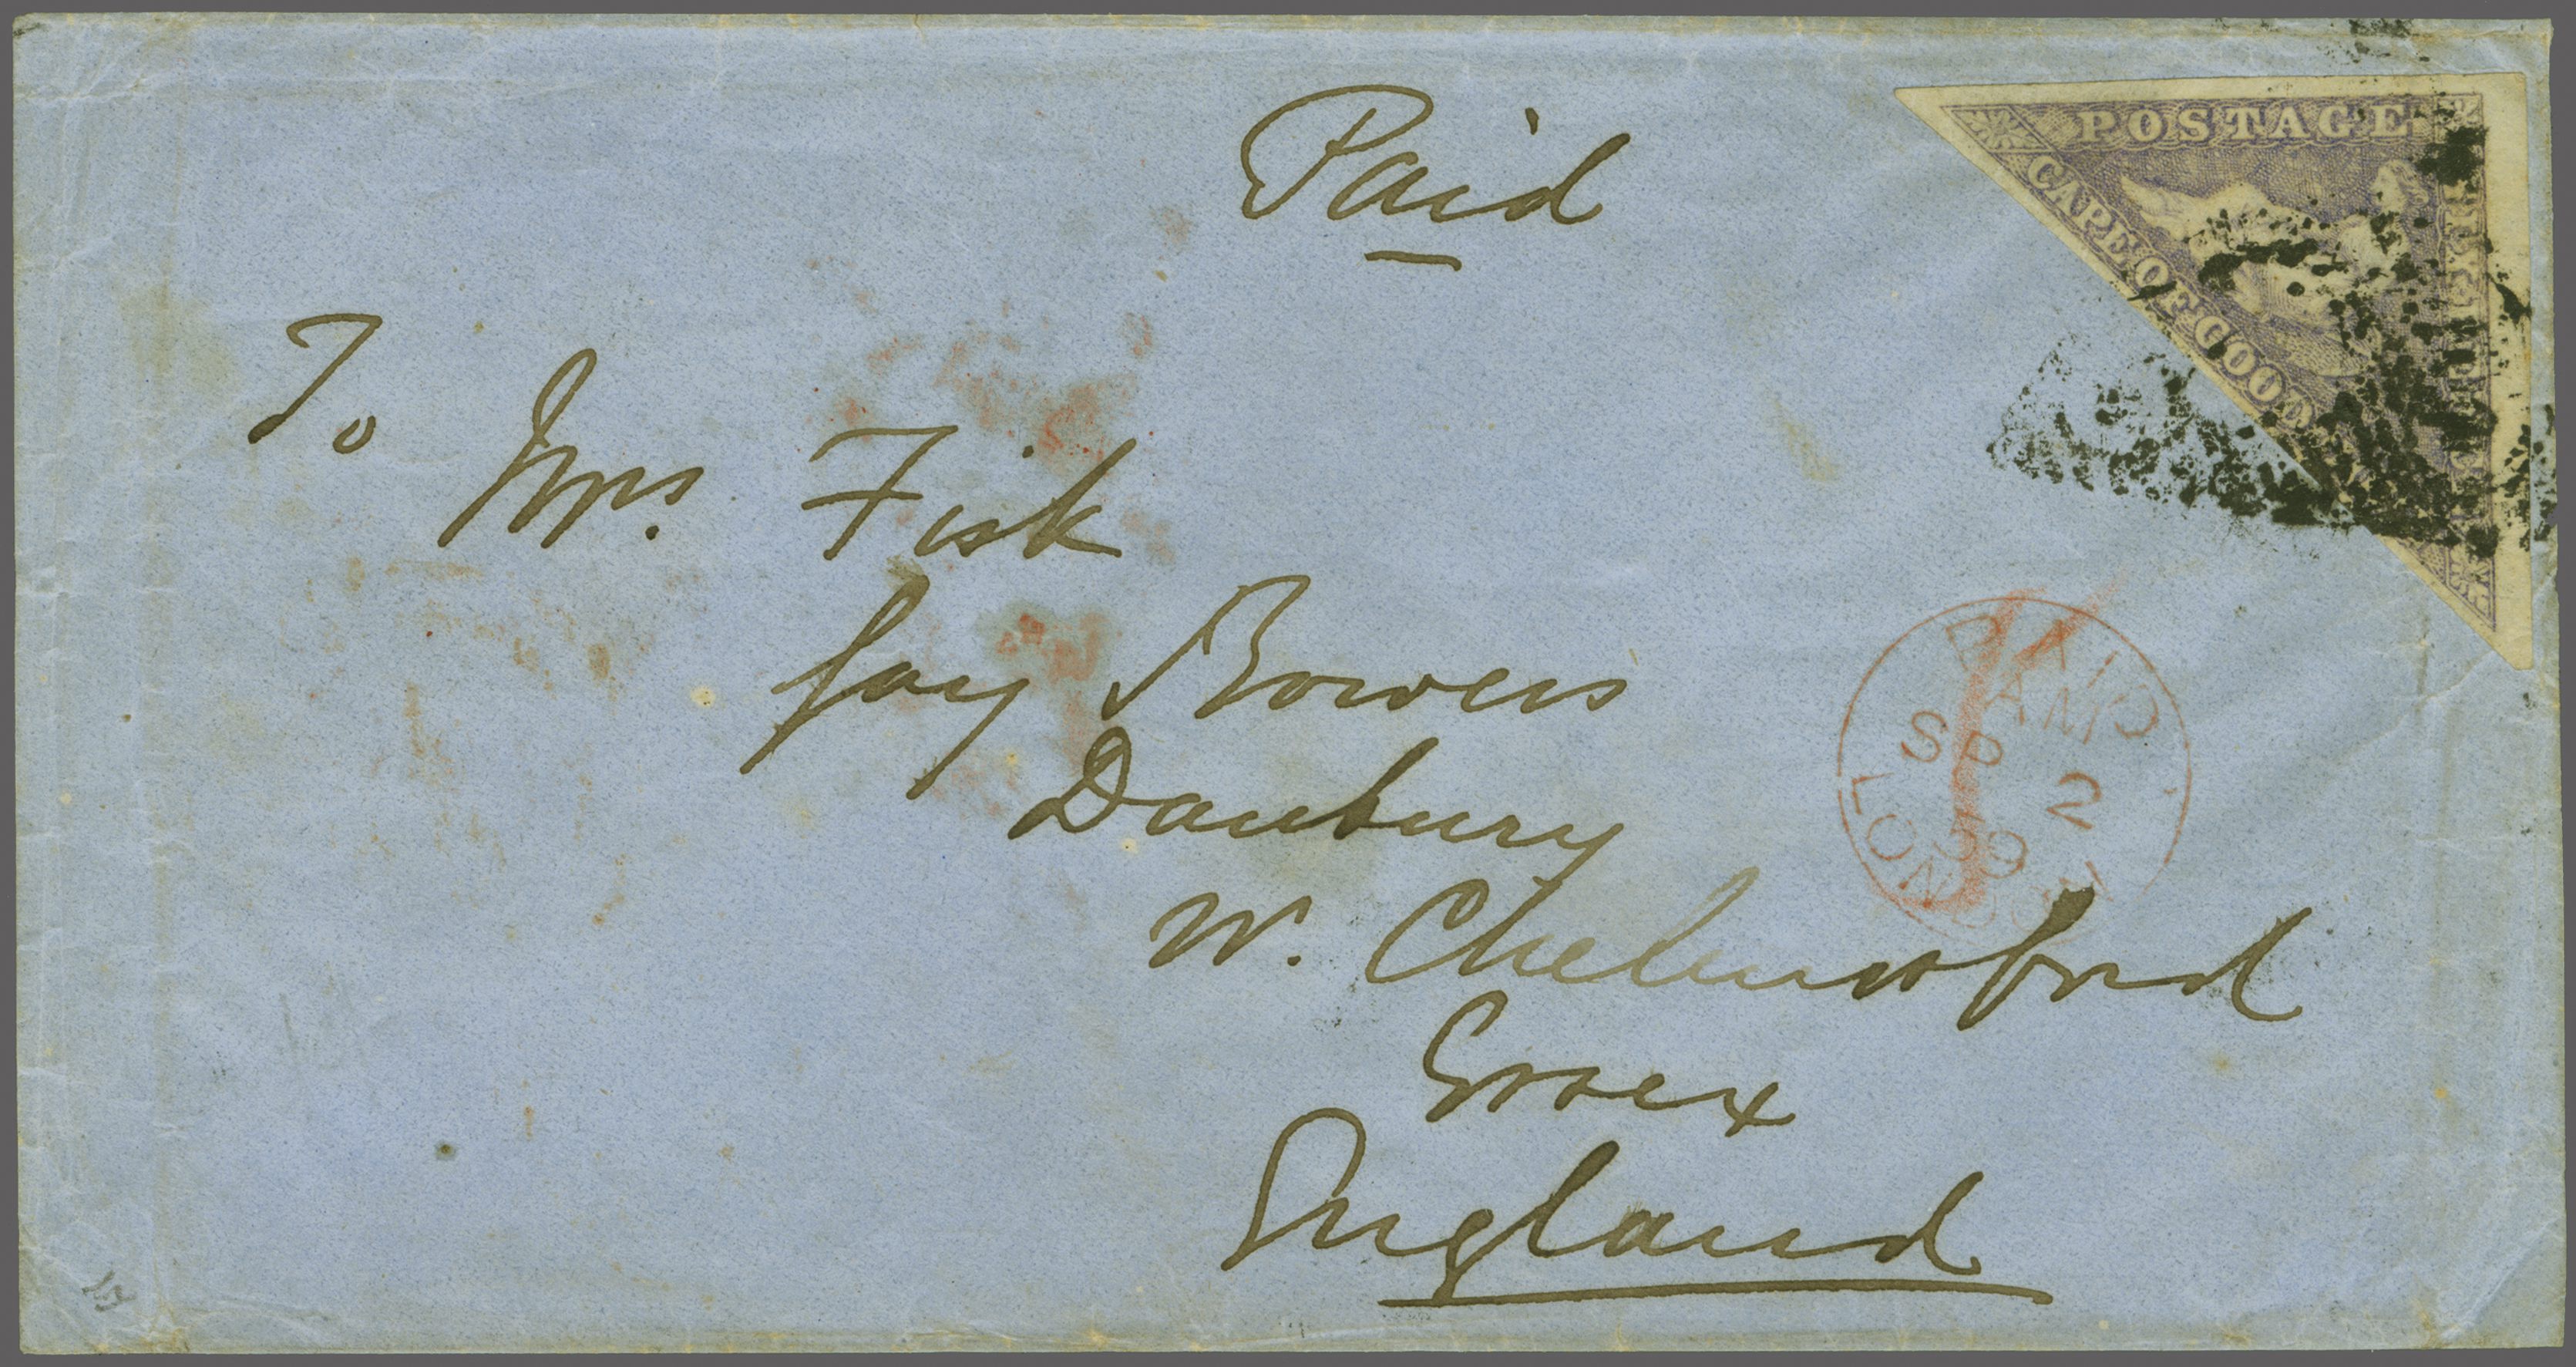 Paid
POSTAGE
CAPE OF GOOD
SIX PENCE
To
Mrs. Fisk
Jay Bowers
Danbury
W. Chelmsford
Essex
England
PAID
AM
SP 2
59
LONDON